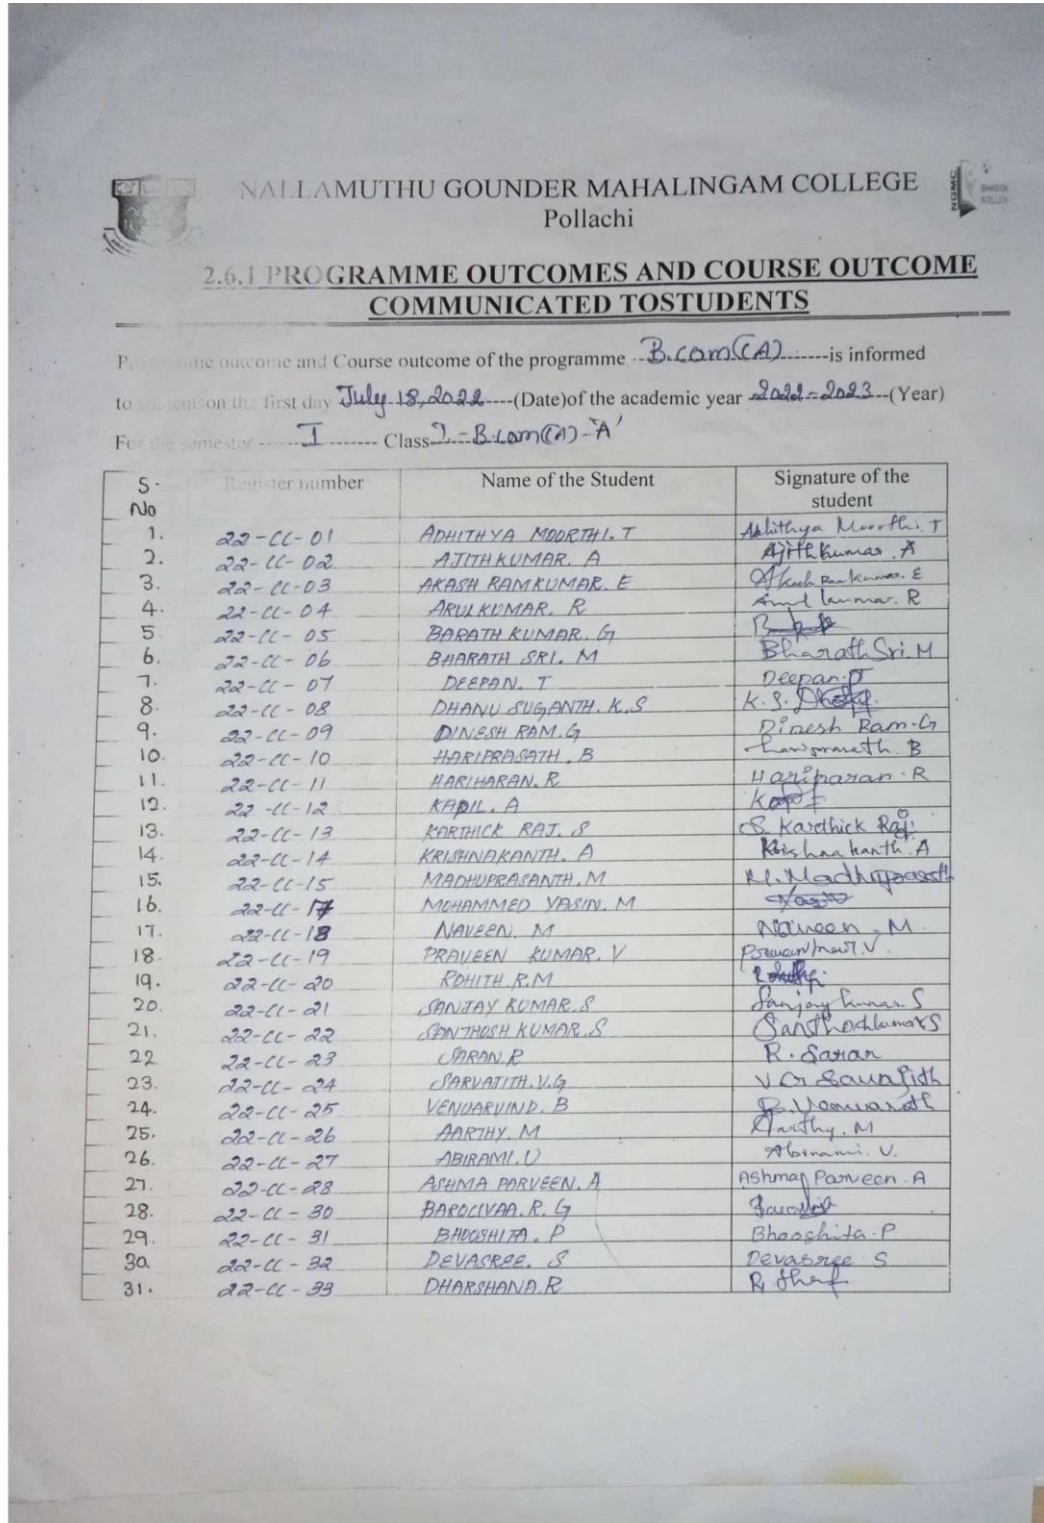 NALLAMUTHU GOUNDER MAHALINGAM COLLEGE
Pollachi
NGMC
2.6.1 PROGRAMME OUTCOMES AND COURSE OUTCOME
COMMUNICATED TOSTUDENTS
Programme outcome and Course outcome of the programme --B.com(CA)------is informed
to studentson the first day July 18, 2022----(Date)of the academic year -2022-2023--(Year)
For the semester ------I------- Class-I-B.com(CA)-'A'
S. No Register number Name of the Student Signature of the student
1. 22-CC-01 ADHITHYA MOORTHI. T Adhithya Moorthi. T
2. 22-CC-02 AJITHKUMAR. A Ajithkumar. A
3. 22-CC-03 AKASH RAMKUMAR. E Akash Ramkumar. E
4. 22-CC-04 ARULKUMAR. R Arul kumar. R
5. 22-CC-05 BARATH KUMAR. G
6. 22-CC-06 BHARATH SRI. M Bharath Sri. M
7. 22-CC-07 DEEPAN. T Deepan. T
8. 22-CC-08 DHANU SUGANTH. K.S K.S.
9. 22-CC-09 DINESH RAM. G Dinesh Ram. G
10. 22-CC-10 HARIPRASATH. B hariprasath. B
11. 22-CC-11 HARIHARAN. R Hariharan. R
12. 22-CC-12 KAPIL. A
13. 22-CC-13 KARTHICK RAJ. S S. Karthick Raj
14. 22-CC-14 KRISHNAKANTH. A Krishna kanth. A
15. 22-CC-15 MADHUPRASANTH. M M. Madhuprasanth
16. 22-CC-17 MOHAMMED YASIN. M
17. 22-CC-18 NAVEEN. M Naveen. M
18. 22-CC-19 PRAVEEN KUMAR. V
19. 22-CC-20 ROHITH R.M
20. 22-CC-21 SANJAY KUMAR. S Sanjay kumar. S
21. 22-CC-22 SANTHOSH KUMAR. S Santhoshkumar S
22 22-CC-23 SARAN. R R. Saran
23. 22-CC-24 SARVAJITH. V.G V G Sarvajith
24. 22-CC-25 VENUARVIND. B
25. 22-CC-26 AARTHY. M Aarthy. M
26. 22-CC-27 ABIRAMI. U Abirami. U.
27. 22-CC-28 ASHMA PARVEEN. A Ashma Parveen. A
28. 22-CC-30 BAROLIVAA. R. G
29. 22-CC-31 BHOOSHITA. P Bhooshita. P
30. 22-CC-32 DEVASREE. S Devasree. S
31. 22-CC-33 DHARSHANA. R